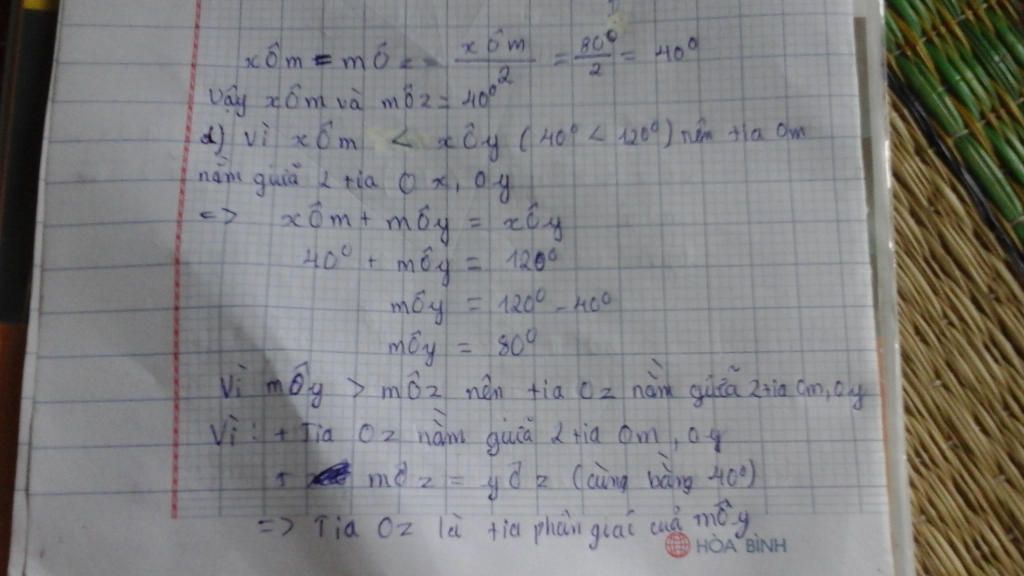 xÔm = mÔz = xÔm/2 = 80⁰/2 = 40⁰
Vậy xÔm và mÔz = 40⁰
d) Vì xÔm < xÔy (40⁰ < 120⁰) nên tia Om
nằm giữa 2 tia Ox, Oy
=> xÔm + mÔy = xÔy
40⁰ + mÔy = 120⁰
mÔy = 120⁰ - 40⁰
mÔy = 80⁰
Vì mÔy > mÔz nên tia Oz nằm giữa 2 tia Om, Oy
Vì: + Tia Oz nằm giữa 2 tia Om, Oy
+ mÔz = yÔz (cùng bằng 40⁰)
=> Tia Oz là tia phân giác của mÔy
HÒA BÌNH